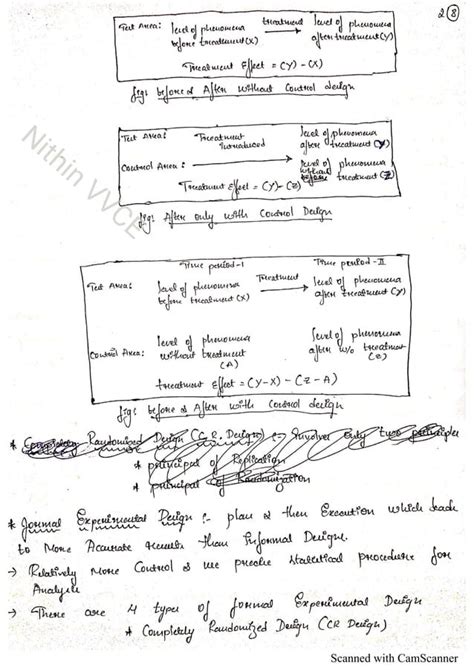 2 (8)
Test Area: level of phenomena before treatment(X) treatment → level of phenomena after treatment(Y)
Treatment Effect = (Y) - (X)
fig: before & After without Control design
Test Area: Treatment Introduced level of phenomena after treatment (Y)
Control Area: → level of phenomena without treatment (Z)
Treatment Effect = (Y) - (Z)
fig: After only with Control Design
Time period-I Time period-II
Test Area: level of phenomena before treatment (X) Treatment → level of phenomena after treatment (Y)
Control Area: level of phenomena without treatment (A) level of phenomena after w/o treatment (Z)
treatment Effect = (Y-X) - (Z-A)
fig: before & After with Control design
* Completely Randomized Design (C.R. Design) :- Involves only two principles
* principal of Replication
* principal of Randomization
* Formal Experimental Design :- plan & then Execution which leads
to More Accurate results than Informal Design.
→ Relatively More Control & use precise statistical procedures for
Analysis
→ There are 4 types of formal Experimental Design
* Completely Randomized Design (CR Design)
Nithin VVCE
Scanned with CamScanner